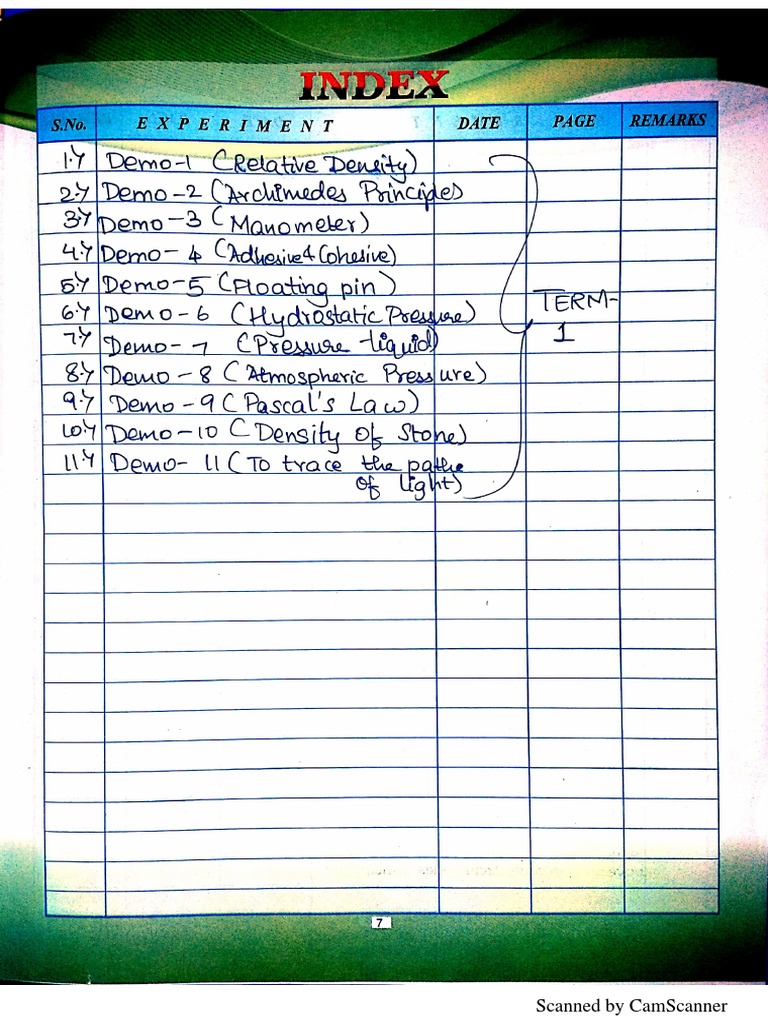 INDEX
S.No. EXPERIMENT DATE PAGE REMARKS
1.) Demo-1 (Relative Density)
2.) Demo-2 (Archimedes Principles
3.) Demo-3 (Manometer)
4.) Demo-4 (Adhesive & Cohesive)
5.) Demo-5 (Floating pin)
6.) Demo-6 (Hydrostatic Pressure)
7.) Demo-7 (Pressure-liquid)
8.) Demo-8 (Atmospheric Pressure)
9.) Demo-9 (Pascal's Law)
10.) Demo-10 (Density of Stone)
11.) Demo-11 (To trace the pathe
of light)
TERM-
1
7
Scanned by CamScanner